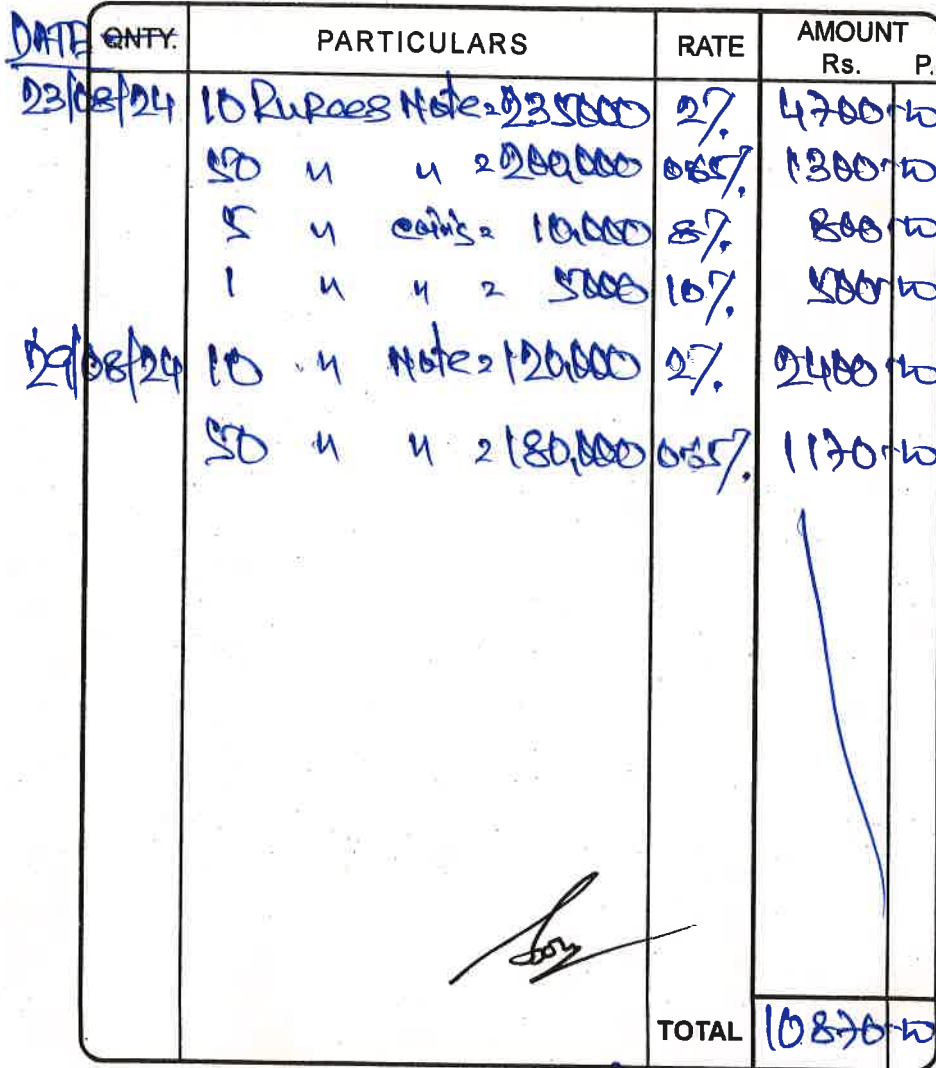 DATE QNTY. PARTICULARS RATE AMOUNT
Rs. P.
23/08/24 10 Rupees Note = 235000 2%. 4700-00
50 " " = 200,000 0.65%. 1300-00
5 " coins = 10,000 8%. 800-00
1 " " = 5000 10%. 500-00
29/08/24 10 " Note = 120,000 2%. 2400-00
50 " " = 180,000 0.65%. 1170-00
TOTAL 10870-00